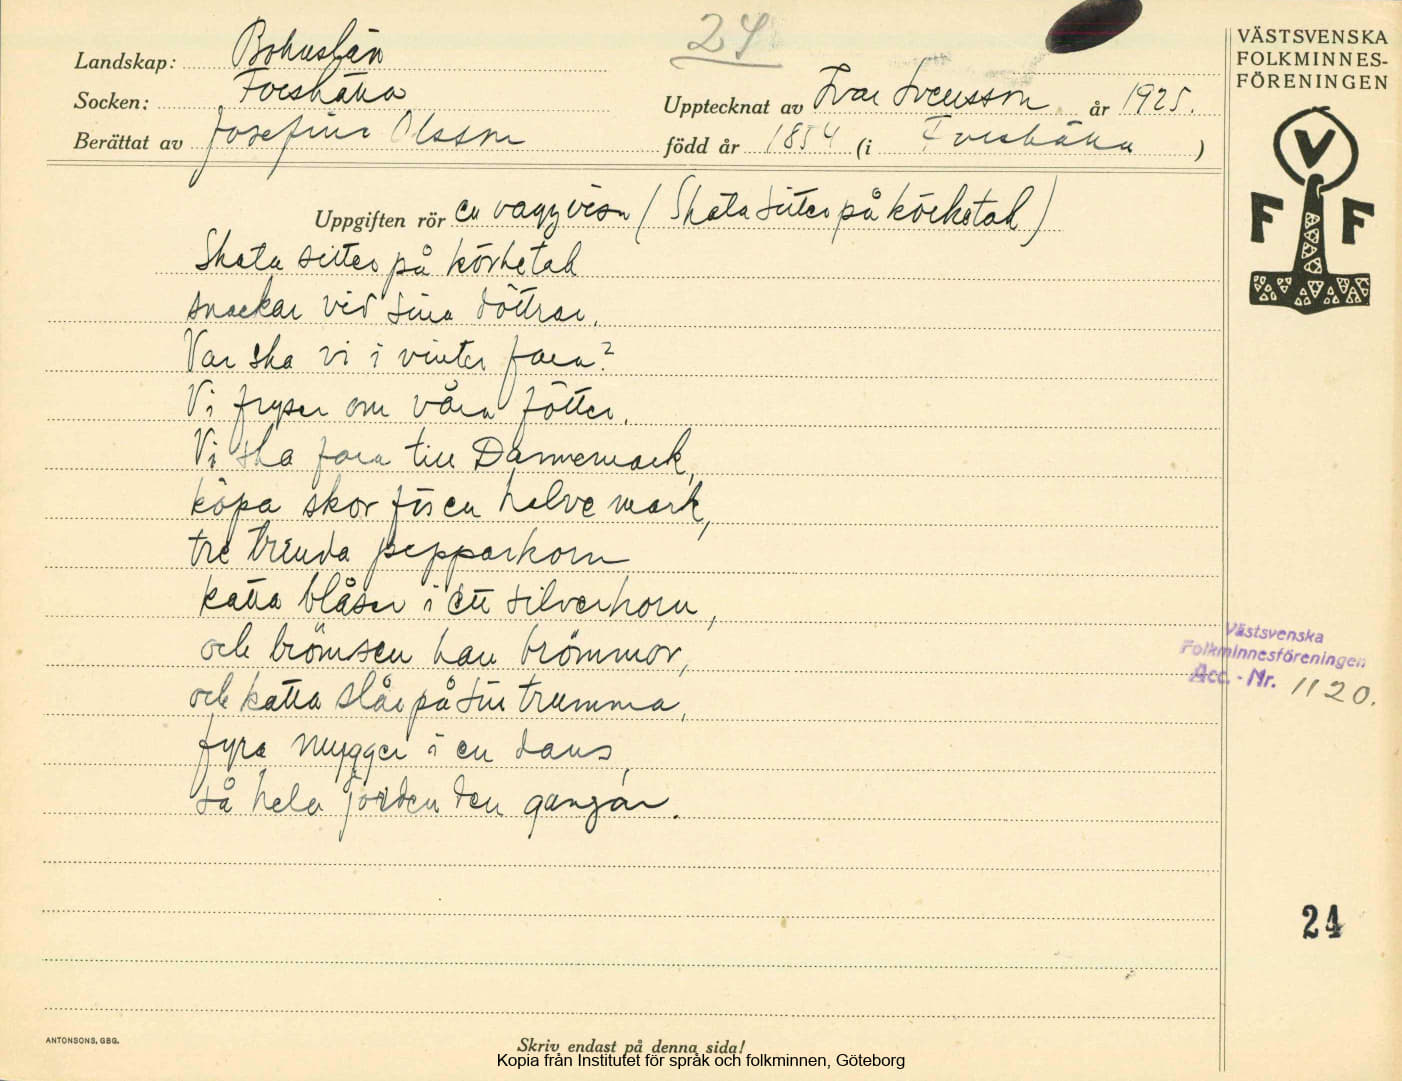 24
VÄSTSVENSKA
FOLKMINNES-
FÖRENINGEN
Landskap: Bohuslän
Socken: Foeshälla
Upptecknat av Ivar Svensson år 1925.
Berättat av Josefine Olsson född år 1854 (i Foeshälla )
V
F F
Uppgiften rör en vaggvisa (Skata sitter på körketak)
Skata sitter på körketak
snackar vid sina döttrar.
Var ska vi i vinter fara?
Vi fryser om våra fötter.
Vi ska fara till Dannemark,
köpa skor för en halve mark,
tre trinda pepparkorn
katta blåser i ett silverhorn,
och brömsen han brömmor,
och katta slår på sin trumma,
fyra mygger i en dans,
så hela jorden den gungar.
Västsvenska
Folkminnesföreningen
Acc. - Nr. 1120.
24
ANTONSONS, GBG.
Skriv endast på denna sida!
Kopia från Institutet för språk och folkminnen, Göteborg